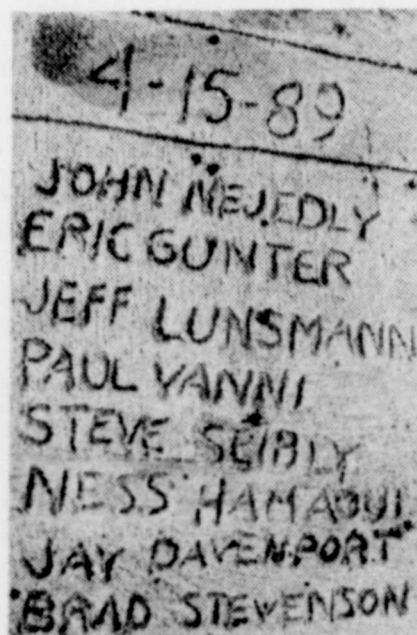 4-15-89
JOHN NEJEDLY
ERIC GUNTER
JEFF LUNSMANN
PAUL VANNI
STEVE SEIBLY
NESS HAMAOUI
JAY DAVENPORT
BRAD STEVENSON